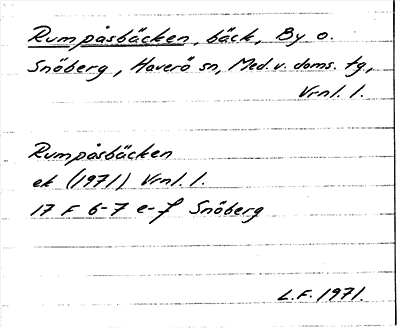 Rumpåsbäcken, bäck, By o.
Snöberg, Haverö sn, Med. v. doms. tg,
Vrnl. l.
Rumpåsbäcken
ek (1971) Vrnl. l.
17 F 6-7 e-f Snöberg
L.F. 1971.